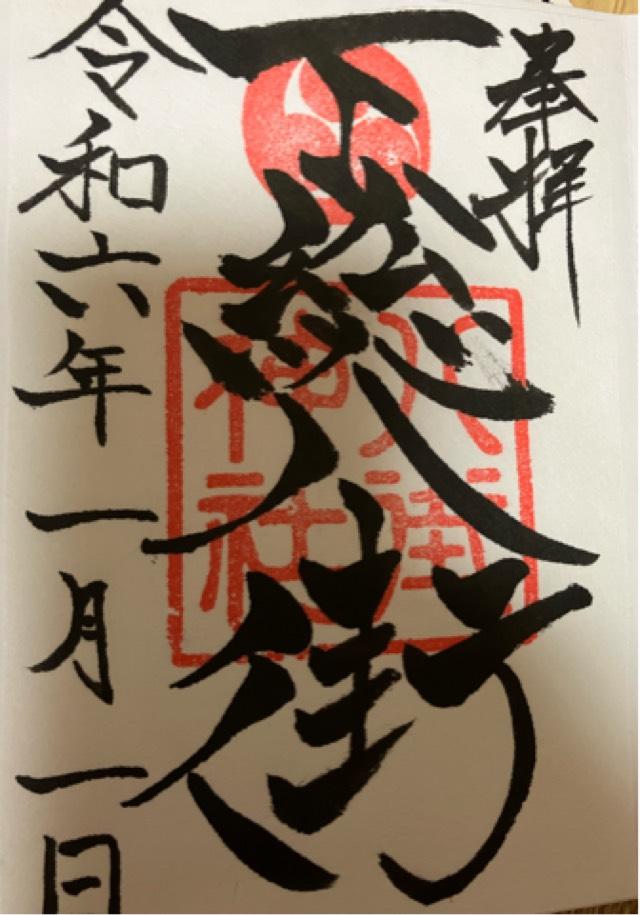 奉拝
下総八街
八街
神社
令和六年一月一日